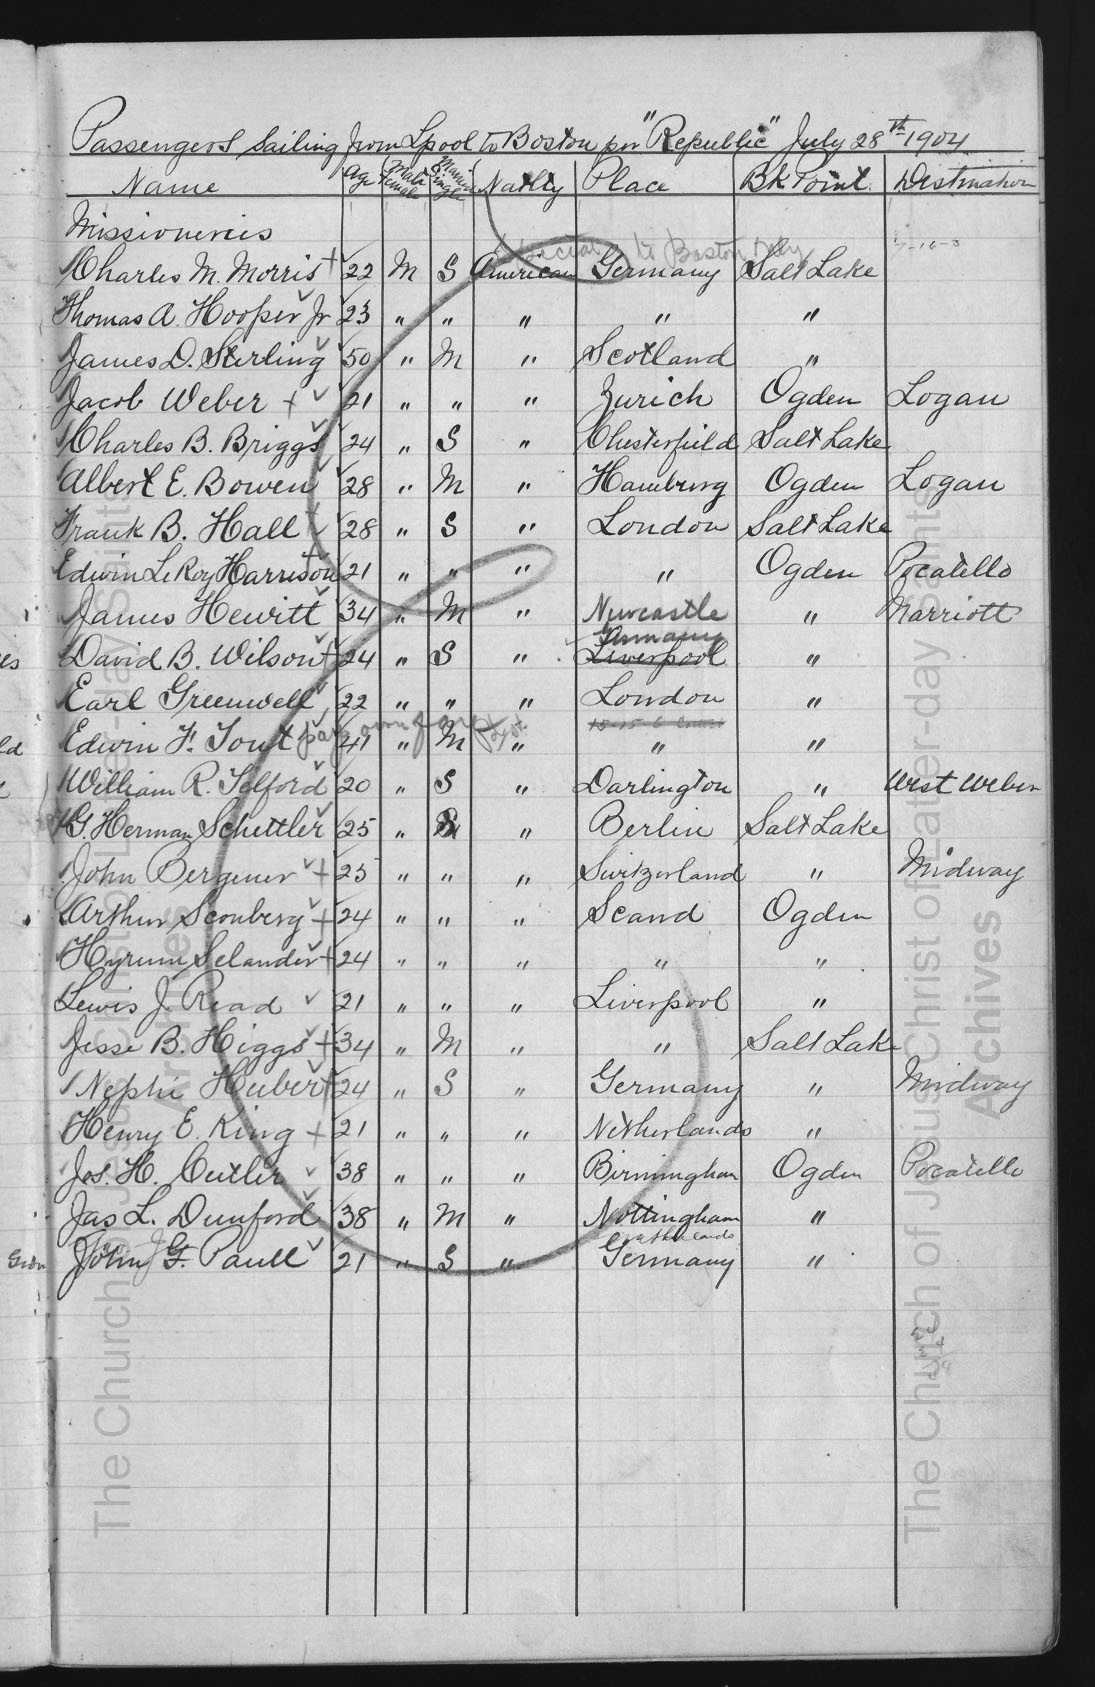 Passengers Sailing from Lpool to Boston per "Republic" July 28th 1904
Name Age Male Female Married Single Natlty Place Bk Point Destination
Missionaries
Special to Boston only
Charles M. Morris + 22 M S American Germany Salt Lake
Thomas A. Hooper Jr 23 " " " " "
James D. Sterling 50 " M " Scotland "
Jacob Weber + 21 " " " Zurich Ogden Logan
Charles B. Briggs 24 " S " Chesterfield Salt Lake
Albert E. Bowen 28 " M " Hamburg Ogden Logan
Frank B. Hall 28 " S " London Salt Lake
Edwin LeRoy Harrison 21 " " " " Ogden Pocatello
James Hewitt 34 " M " Newcastle " Marriott
Germany
David B. Wilson + 24 " S " Liverpool "
Earl Greenwell 22 " " " London "
Edwin F. Tout 41 " M " " "
William R. Telford 20 " S " Darlington " West Weber
G. Herman Schettler 25 " S " Berlin Salt Lake
John Bergener + 25 " " " Switzerland " Midway
Arthur Sconberg + 24 " " " Scand Ogden
Hyrum Selander + 24 " " " " "
Lewis J. Read 21 " " " Liverpool "
Jesse B. Higgs + 34 " M " " Salt Lake
Nephi Huber + 24 " S " Germany " Midway
Henry E. King + 21 " " " Netherlands "
Jos. H. Cutler 38 " " " Birmingham Ogden Pocatello
Jas L. Dunford 38 " M " Nottingham "
Netherlands
John G. Paull 21 " S " Germany "
The Church of Jesus Christ of Latter-day Saints
Archives
The Church of Jesus Christ of Latter-day Saints
Archives